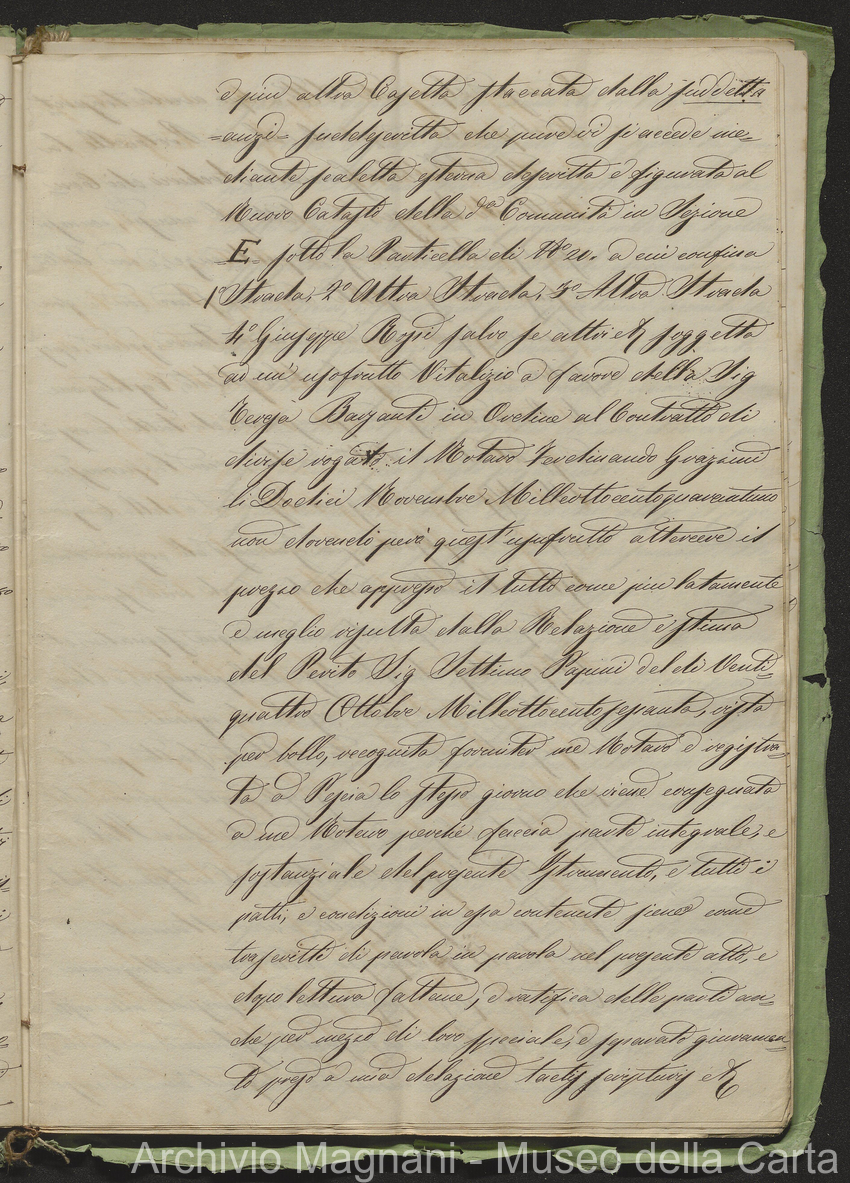 e più altra Casetta staccata dalla suddetta
=anzi= suddescritta che pure vi si accede me=
diante scaletta esterna descritta e figurata al
Nuovo Catasto della d.ª Comunità in Sezione
E sotto la Particella di N.º 21. a cui confina
1º Strada, 2º Altra Strada, 3º Altra Strada
4º Giuseppe Rossi salvo se altri &c soggetta
ad un' usofrutto Vitalizio a favore della Sig
Teresa Barzanti in Ordine al Contratto di
divise rogato il Notaro Ferdinando Grazzini
li Dodici Novembre Milleottocentoquarantuno
non dovendo però quest' usufrutto alterare il
prezzo che appresso il tutto come più latamente
e meglio risulta dalla Relazione e stima
del Perito Sig Settimo Papini del dì Venti=
quattro Ottobre Milleottocentosessanta, vista
per bollo, recognita formiter me Notaro e registra=
ta a Pescia lo stesso giorno che viene consegnata
a me Notaro perché faccia parte integrale, e
sostanziale del presente Istrumento, e tutti i
patti, e condizioni in essa contenute siene come
trascritti di parola in parola nel presente atto, e
dopo lettura fattane, e ratifica delle parti an=
che per mezzo di loro speciale, e separato giuramen=
to preso a mia delazione tactis scripturis &c
Archivio Magnani - Museo della Carta